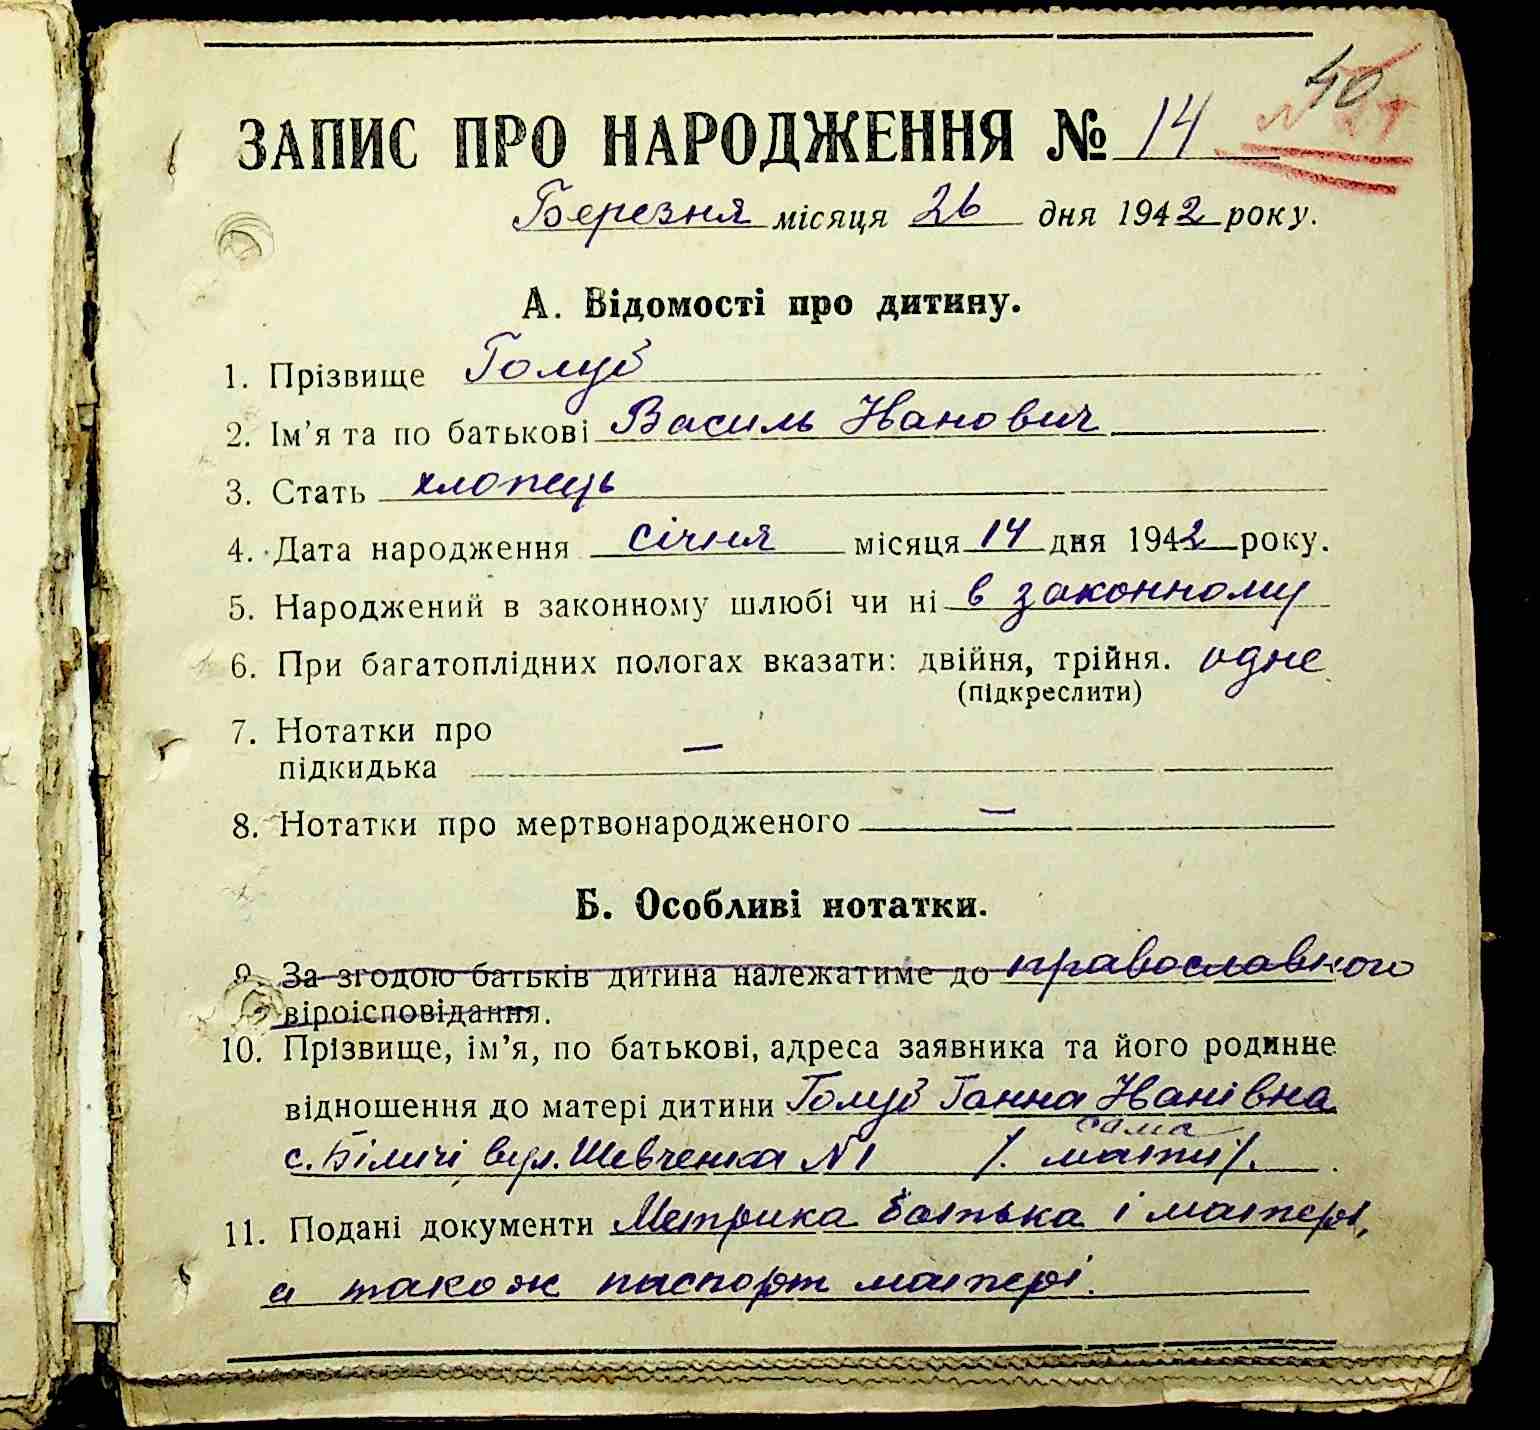 40
№ 21
ЗАПИС ПРО НАРОДЖЕННЯ № 14
Березня місяця 26 дня 1942 року.
А. Відомості про дитину.
1. Прізвище Голуб
2. Ім'я та по батькові Василь Іванович
3. Стать хлопець
4. Дата народження січня місяця 14 дня 1942 року.
5. Народжений в законному шлюбі чи ні в законному
6. При багатоплідних пологах вказати: двійня, трійня. одне
(підкреслити)
7. Нотатки про
підкидька —
8. Нотатки про мертвонародженого —
Б. Особливі нотатки.
9. За згодою батьків дитина належатиме до православного
віроісповідання.
10. Прізвище, ім'я, по батькові, адреса заявника та його родинне
відношення до матері дитини Голуб Ганна Іванівна
сама
с. Біличі, вул. Шевченка №1 /. мати/.
11. Подані документи Метрика батька і матері,
а також паспорт матері.